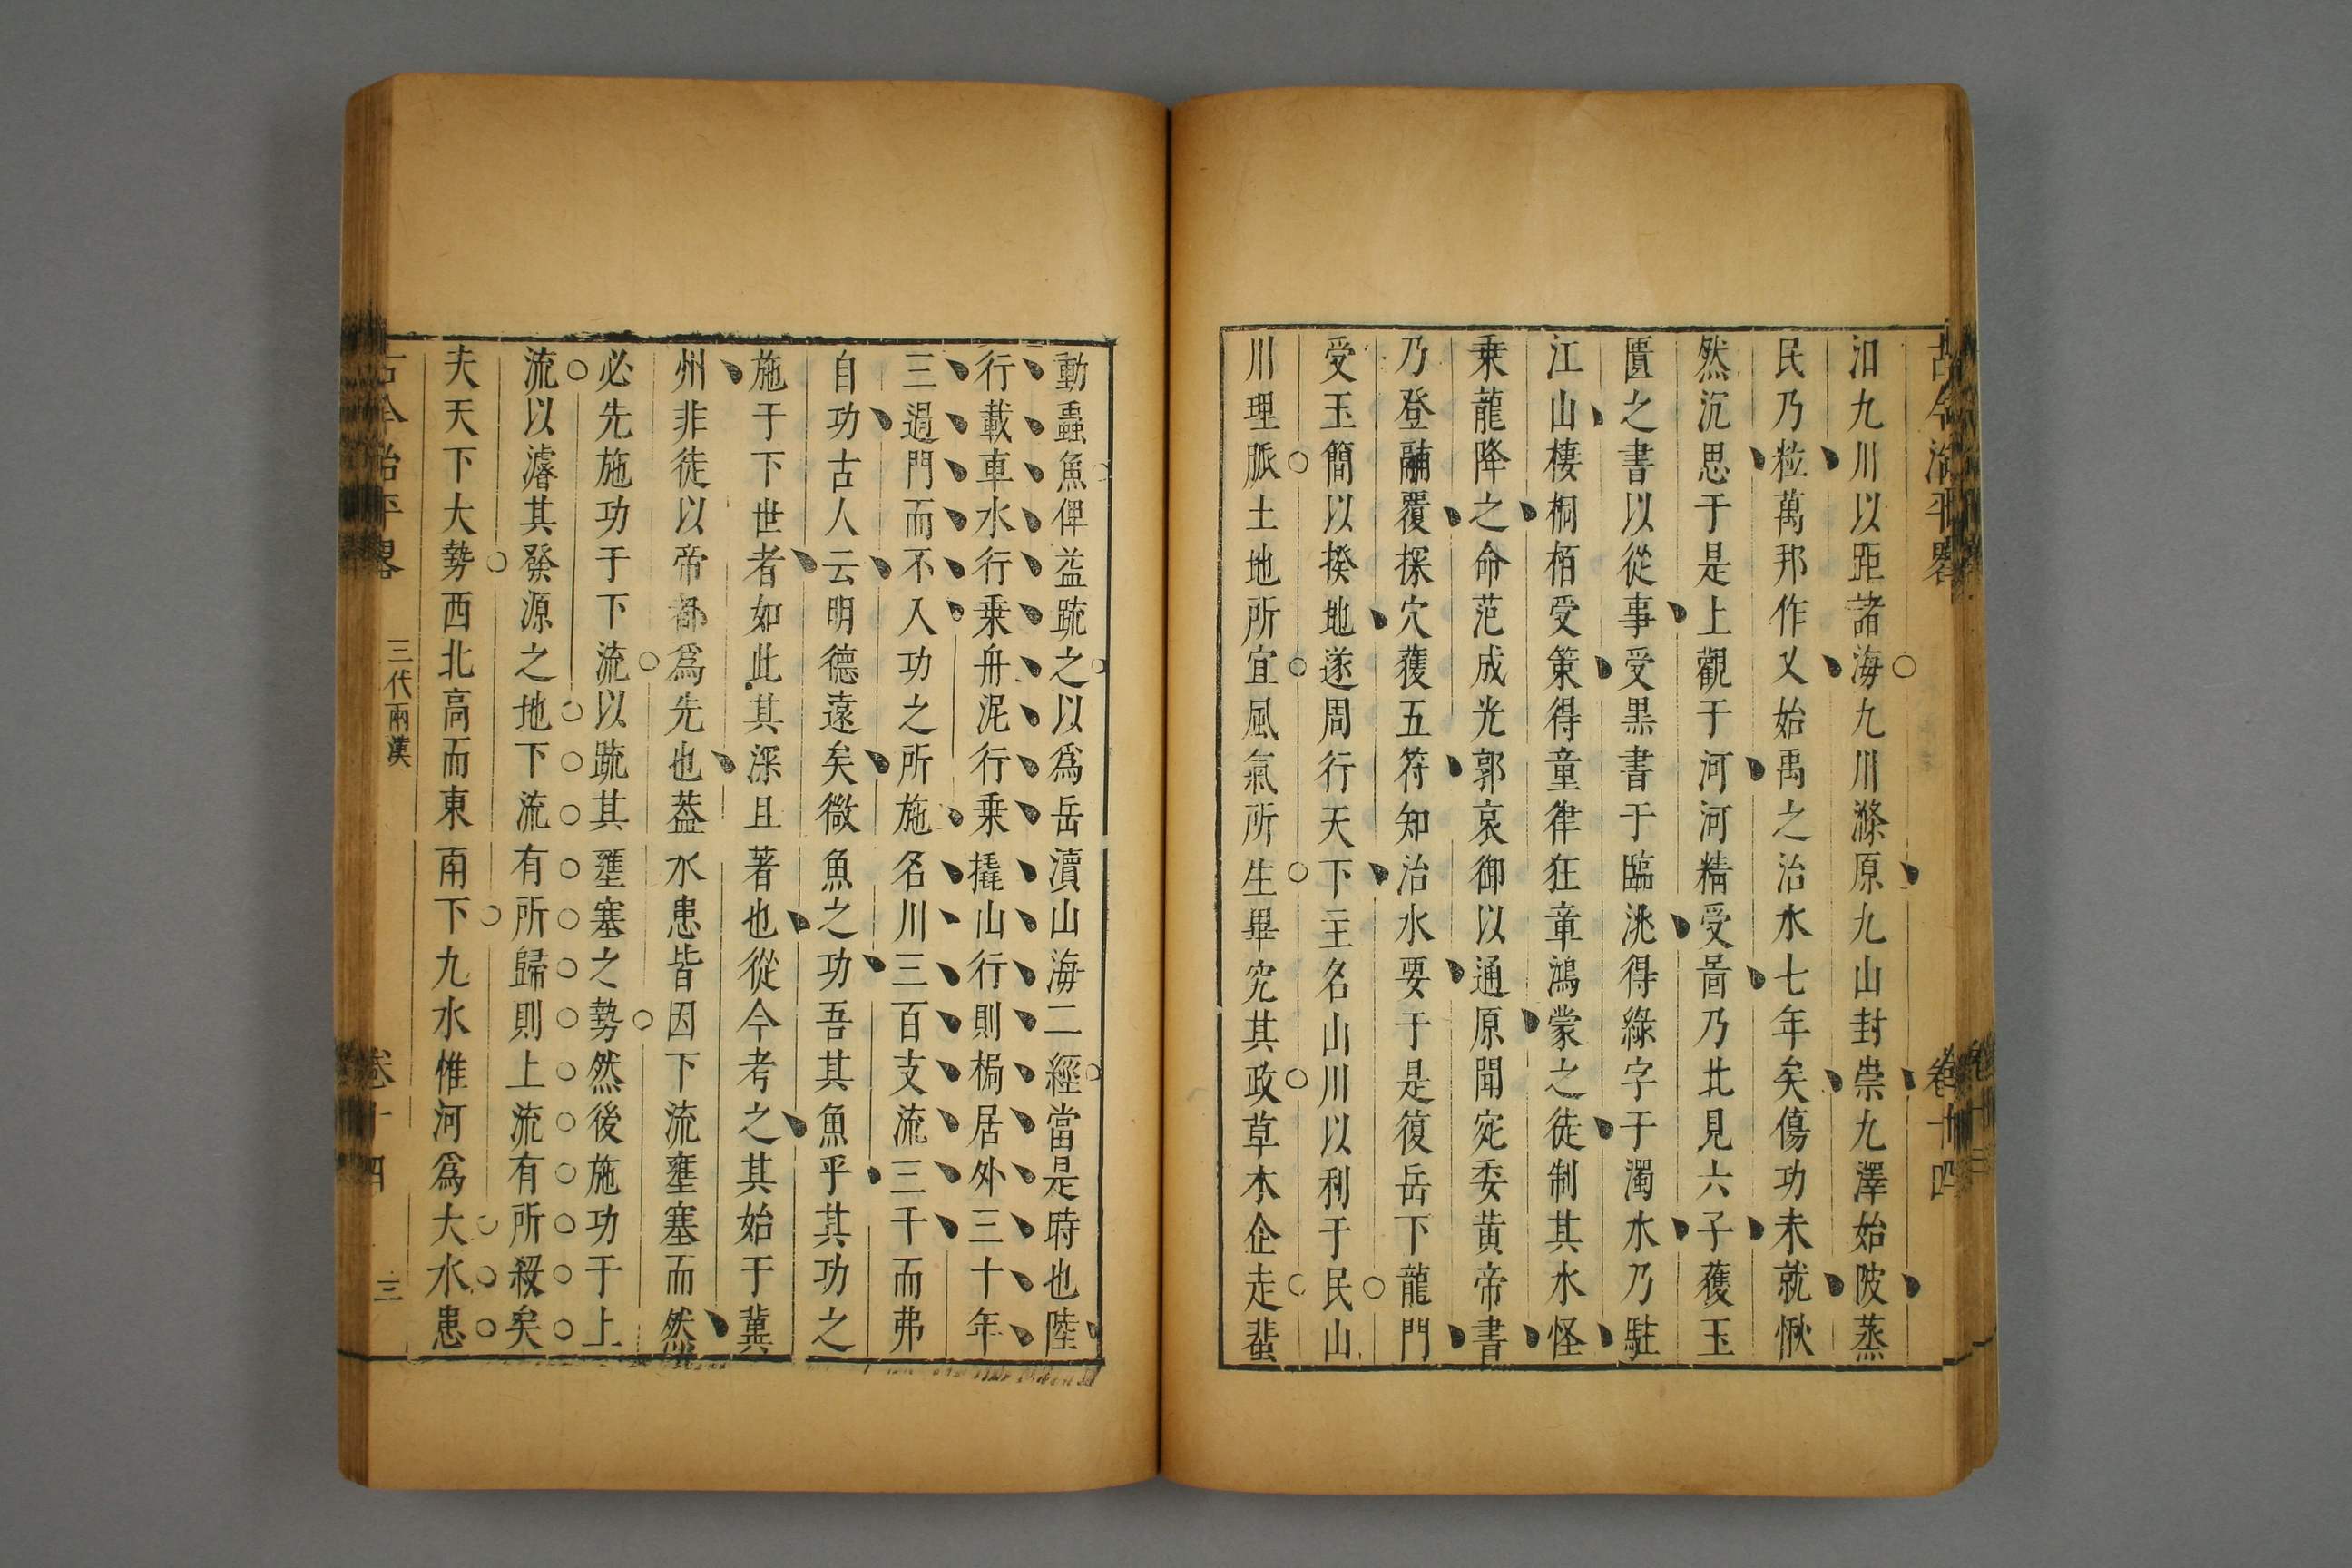 古今治平畧
卷十四
汩九川以距諸海九川滌原九山封崇九澤始陂蒸
民乃粒萬邦作乂始禹之治水七年矣傷功未就愀
然沉思于是上觀于河河精受啚乃北見六子獲玉
匱之書以從事受黒書于臨洮得綠字于濁水乃駐
江山棲桐栢受策得童律狂章鴻蒙之徒制其水怪
乗龍降之命范成光郭哀御以通原聞宛委黄帝書
乃登 覆探穴獲五符知治水要于是復岳下龍門
受玉簡以揆地遂周行天下主名山川以利于民山
川理脈土地所宜風氣所生畢究其政草木企走蜚
動蟲魚俾益䟽之以爲岳瀆山海二經當是時也陸
行載車水行乗舟泥行乗橇山行則梮居外三十年
三過門而不入功之所施名川三百支流三千而弗
自功古人云明德遠矣微魚之功吾其魚乎其功之
施于下世者如此其深且著也從今考之其始于冀
州非徒以帝都爲先也葢水患皆因下流壅塞而然
必先施功于下流以䟽其壅塞之勢然後施功于上
流以濬其發源之地下流有所歸則上流有所殺矣
夫天下大勢西北高而東南下九水惟河爲大水患
古今治平畧
三代兩漢
卷十四
三